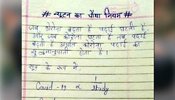 # न्यूटन का चौथा नियम #
जब कोरोना बढ़ता है पढ़ाई घटती है
और जब कोरोना घटता है तब पढ़ाई
बढ़ती है अर्थात कोरोना पढ़ाई का
व्युत्क्रमानुपाती होता है।
सूत्र के रूप में,
1
Covid-19 ∝ study